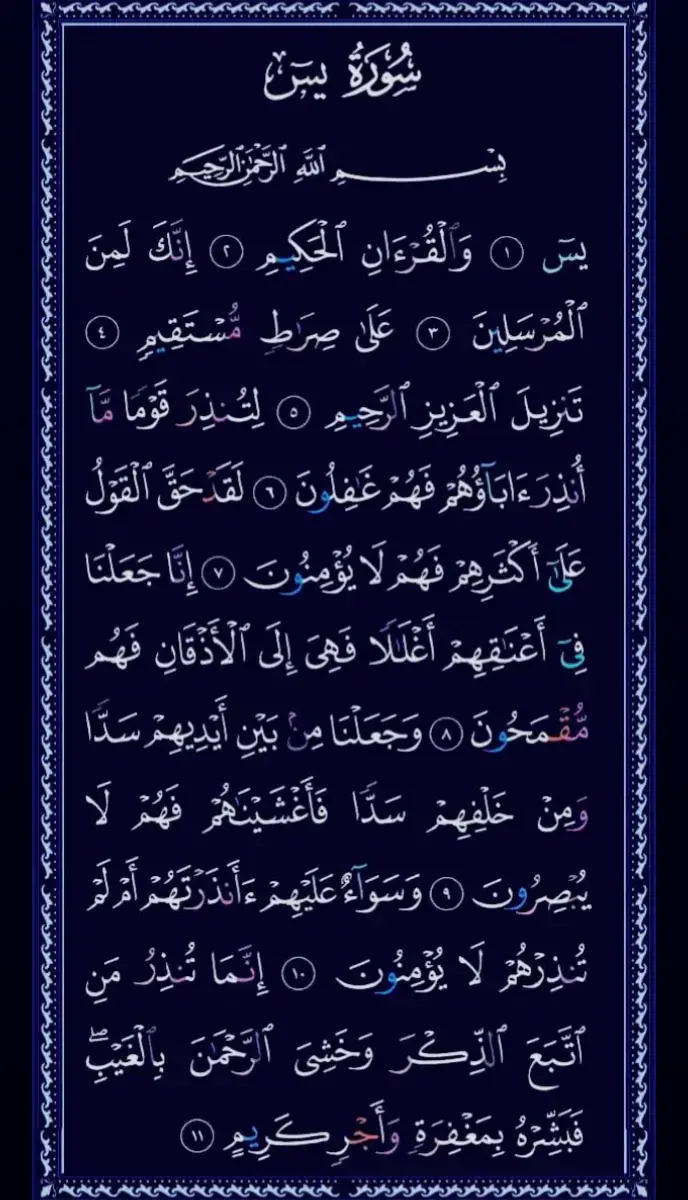 سُورَةُ يسٓ
بِسْمِ ٱللَّهِ ٱلرَّحْمَٰنِ ٱلرَّحِيمِ
يسٓ ١ وَٱلْقُرْءَانِ ٱلْحَكِيمِ ٢ إِنَّكَ لَمِنَ
ٱلْمُرْسَلِينَ ٣ عَلَىٰ صِرَٰطٍ مُّسْتَقِيمٍ ٤
تَنزِيلَ ٱلْعَزِيزِ ٱلرَّحِيمِ ٥ لِتُنذِرَ قَوْمًا مَّآ
أُنذِرَ ءَابَآؤُهُمْ فَهُمْ غَٰفِلُونَ ٦ لَقَدْ حَقَّ ٱلْقَوْلُ
عَلَىٰٓ أَكْثَرِهِمْ فَهُمْ لَا يُؤْمِنُونَ ٧ إِنَّا جَعَلْنَا
فِىٓ أَعْنَٰقِهِمْ أَغْلَٰلًا فَهِىَ إِلَى ٱلْأَذْقَانِ فَهُم
مُّقْمَحُونَ ٨ وَجَعَلْنَا مِنۢ بَيْنِ أَيْدِيهِمْ سَدًّا
وَمِنْ خَلْفِهِمْ سَدًّا فَأَغْشَيْنَٰهُمْ فَهُمْ لَا
يُبْصِرُونَ ٩ وَسَوَآءٌ عَلَيْهِمْ ءَأَنذَرْتَهُمْ أَمْ لَمْ
تُنذِرْهُمْ لَا يُؤْمِنُونَ ١٠ إِنَّمَا تُنذِرُ مَنِ
ٱتَّبَعَ ٱلذِّكْرَ وَخَشِىَ ٱلرَّحْمَٰنَ بِٱلْغَيْبِ ۖ
فَبَشِّرْهُ بِمَغْفِرَةٍ وَأَجْرٍ كَرِيمٍ ١١